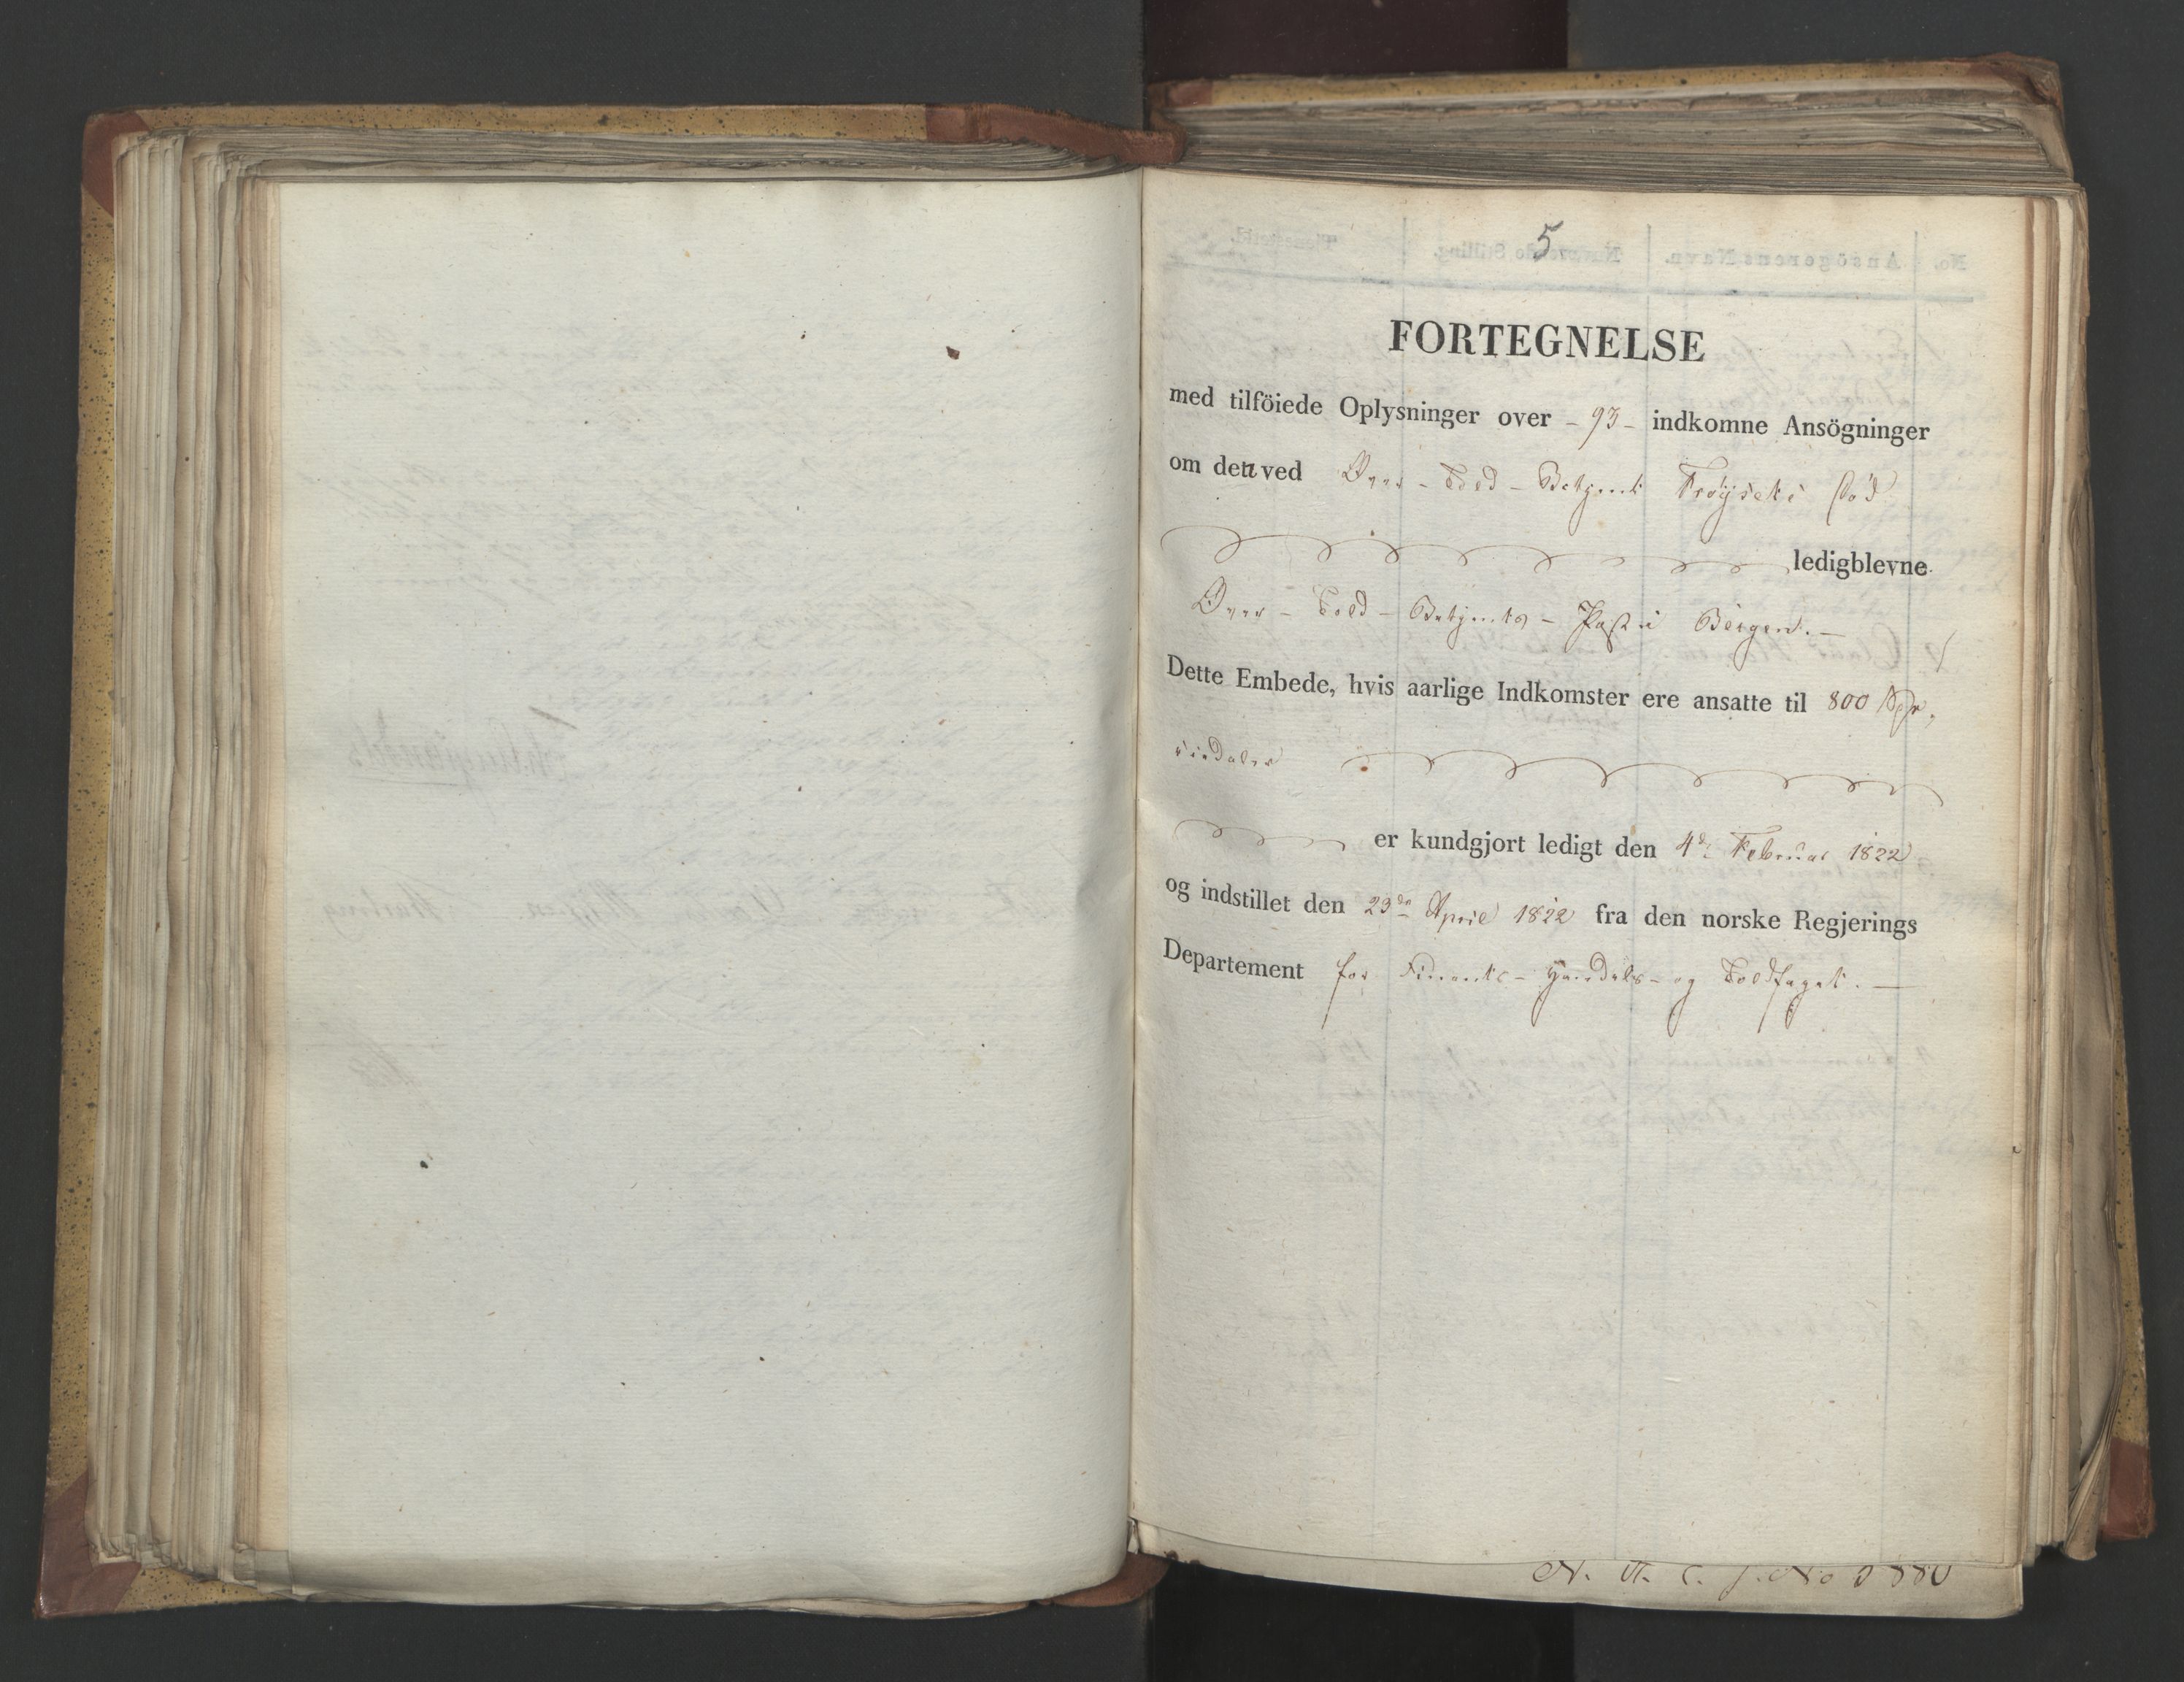 5
FORTEGNELSE
med tilföiede Oplysninger over - 93 - indkomne Ansögninger
om den ved Over-Told-Betjent Död
ledigblevne
Over-Told-Betjents-Post i Bergen. -
Dette Embede, hvis aarlige Indkomster ere ansatte til 800 Spe-
ciedaler
er kundgjort ledigt den 4de Februar 1822
og indstillet den 23de April 1822 fra den norske Regjerings
Departement for Finants- Handels- og Toldfaget. -